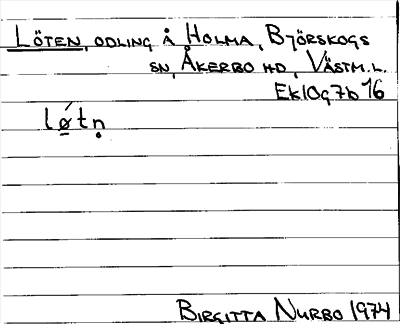 Löten, odling å Holma, Björskogs
sn, Åkerbo hd, Västm.l.
Ek 10g7b 16
lǿtṇ
Birgitta Nurbo 1974